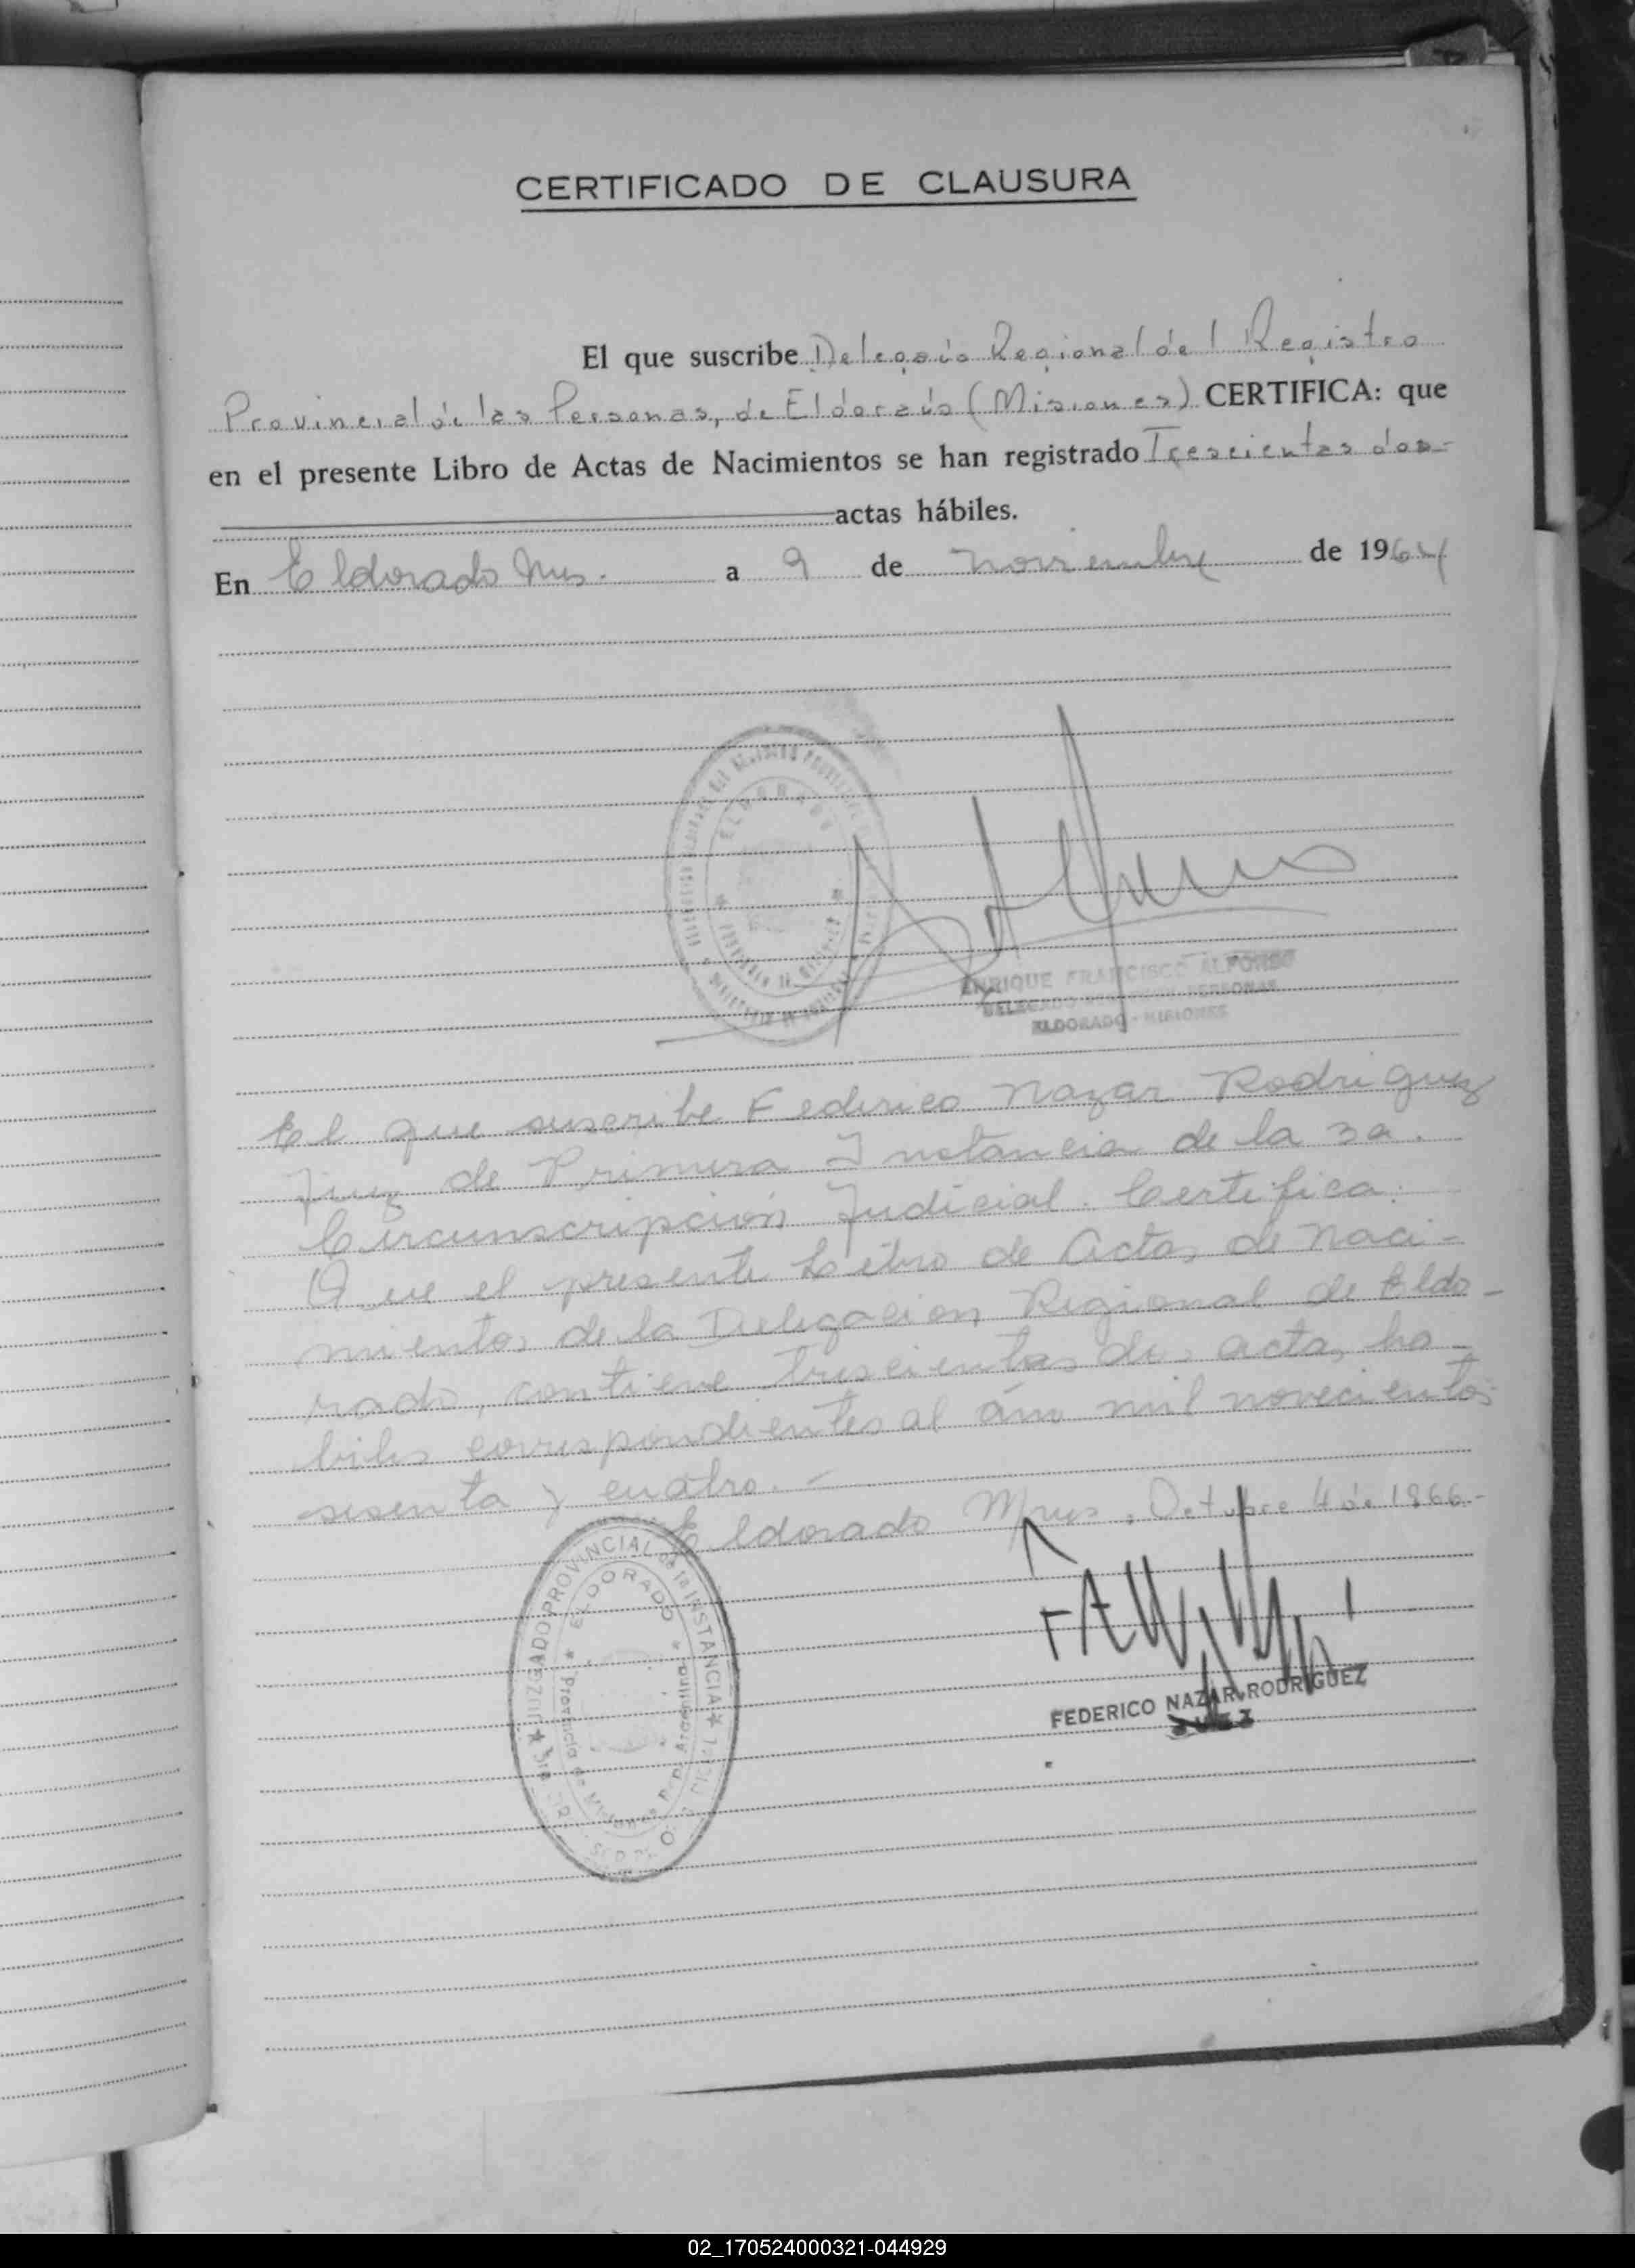 CERTIFICADO DE CLAUSURA
El que suscribe Delegado Regional del Registro
Provincial de las Personas, de Eldorado (Misiones) CERTIFICA: que
en el presente Libro de Actas de Nacimientos se han registrado Trescientas dos-
actas hábiles.
En Eldorado Mns. a 9 de noviembre de 1964
ELDORADO
ENRIQUE FRANCISCO ALFONSO
DELEGADO PERSONAS
ELDORADO - MISIONES
El que suscribe Federico Nazar Rodriguez
Juez de Primera Instancia de la 3a.
Circunscripción Judicial. Certifica:
Que el presente Libro de Actas de Naci-
mientos de la Delegacion Regional de Eldo-
rado, contiene trescientas dos actas ha-
biles correspondientes al año mil novecientos
sesenta y cuatro. -
Eldorado Mnes, Octubre 4 de 1966.-
JUZGADO PROVINCIAL de 1a INSTANCIA
ELDORADO
Provincia de Misiones Rep. Argentina
FEDERICO NAZAR RODRIGUEZ
JUEZ
02_170524000321-044929